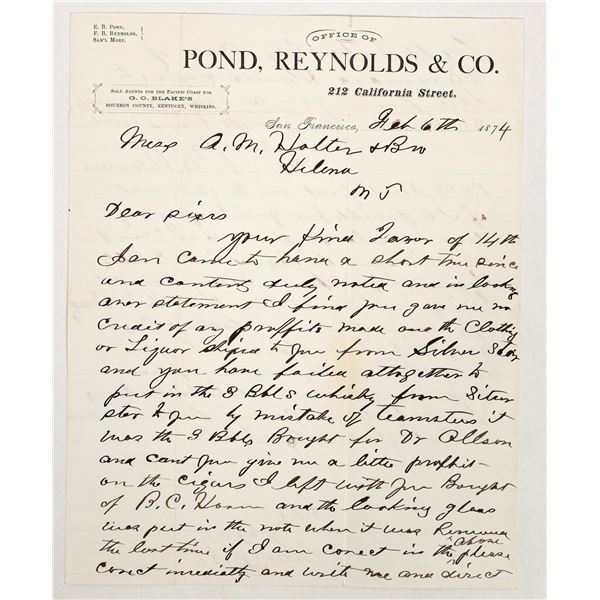 E. B. Pond,
F. B. Reynolds,
Sam'l More.
OFFICE OF
POND, REYNOLDS & CO.
212 California Street.
Sole Agents for the Pacific Coast for
G. O. BLAKE'S
Bourbon County, Kentucky, Whiskies.
San Francisco, Feb 6th 1874
Mess A. M. Holter & Bro
Helena
M T
Dear Sirs
your kind favor of 14th
Jan came to hand a short time since
and contents duly noted and in looking
over statement I find you gave me no
credit of any proffits made on the Clothing
or Liquor shiped to you from Silver Star
and you have failed altogether to
put in the 3 Bbls whisky from Silver
Star to you by mistake of teamsters it
was the 3 Bbls Bought for Dr Allson
and cant you give me a little proffit
on the cigars I left with you Bought
of B. C. and the looking glass
was put in the note when it was Renewed
the last time if I am corect in the above please
corect imediatly and write me and direct